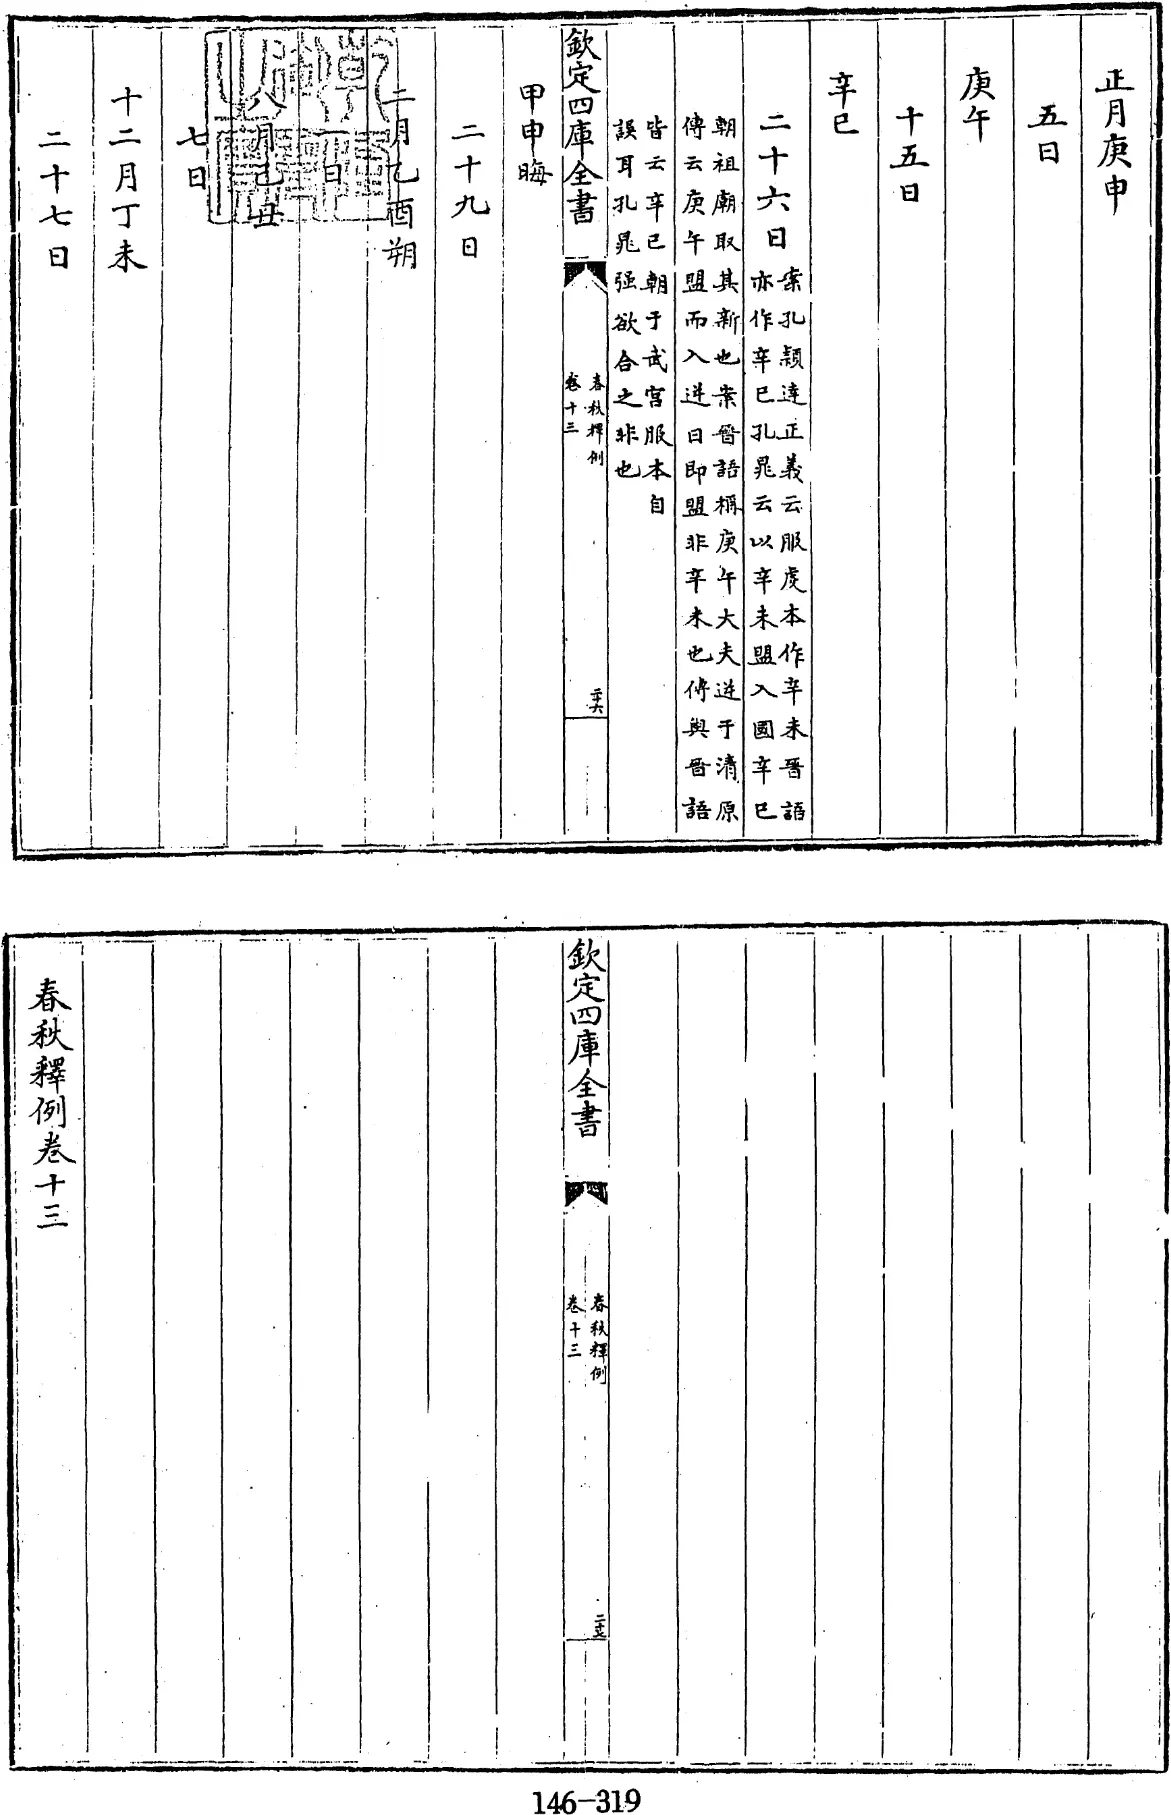 正月庚申
五日
庚午
十五日
辛巳
二十六日
案孔穎達正義云服虔本作辛未晉語
亦作辛巳孔晁云以辛未盟入國辛巳
朝祖廟取其新也案晉語稱庚午大夫逆于清原
傳云庚午盟而入逆日即盟非辛未也傳與晉語
皆云辛巳朝于武宮服本自
誤耳孔晁强欲合之非也
欽定四庫全書
春秋釋例
卷十三
二十六
甲申晦
二十九日
二月乙酉朔
一日
八月己丑
七日
十二月丁未
二十七日
乾隆御覽之寶
欽定四庫全書
春秋釋例
卷十三
二十七
春秋釋例卷十三
146-319